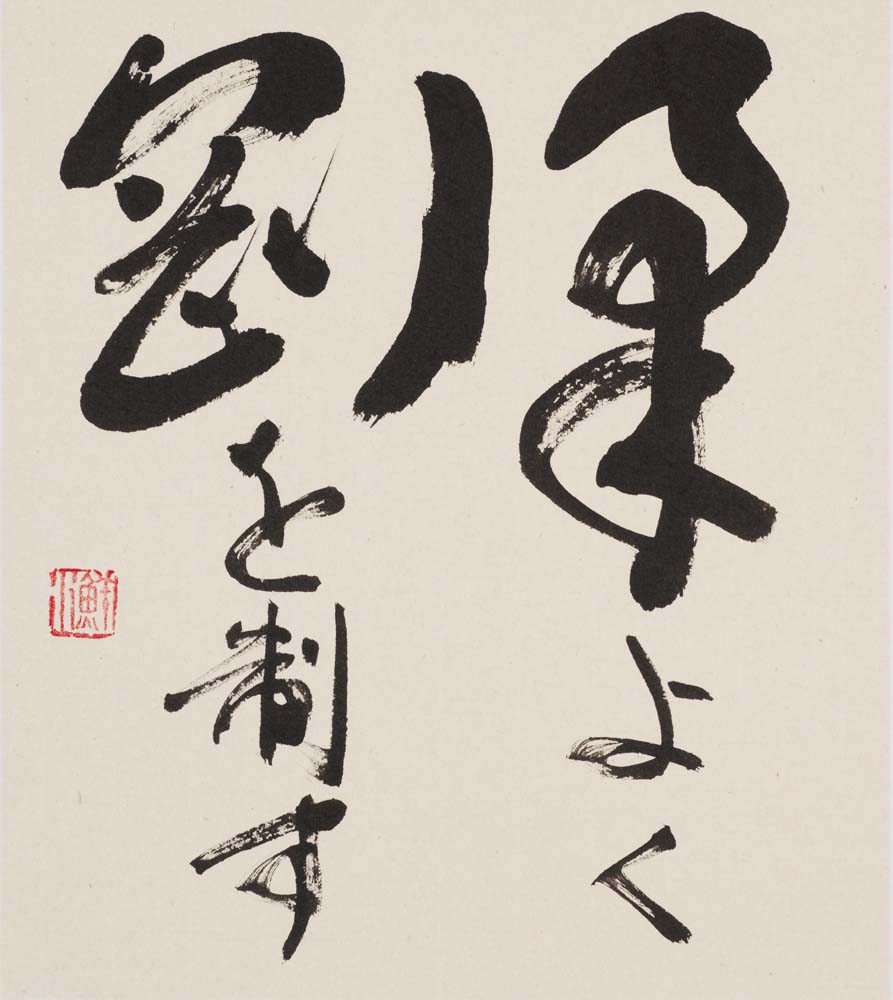 柔よく
剛を制す